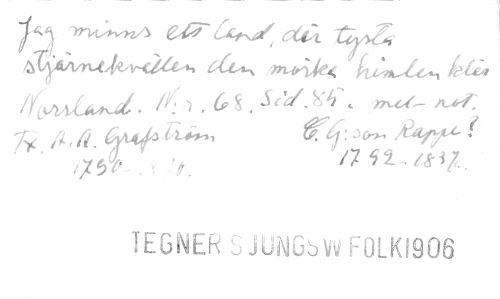 Jag minns ett land, där tysta
stjärnekvällen den mörka himlen klär
Norrland. N:r. 68. Sid. 85. mel- not.
Tx. A.A. Grafström C. G:son Rappe?
1790- 1792-1837.
TEGNER SJUNGS W FOLK1906